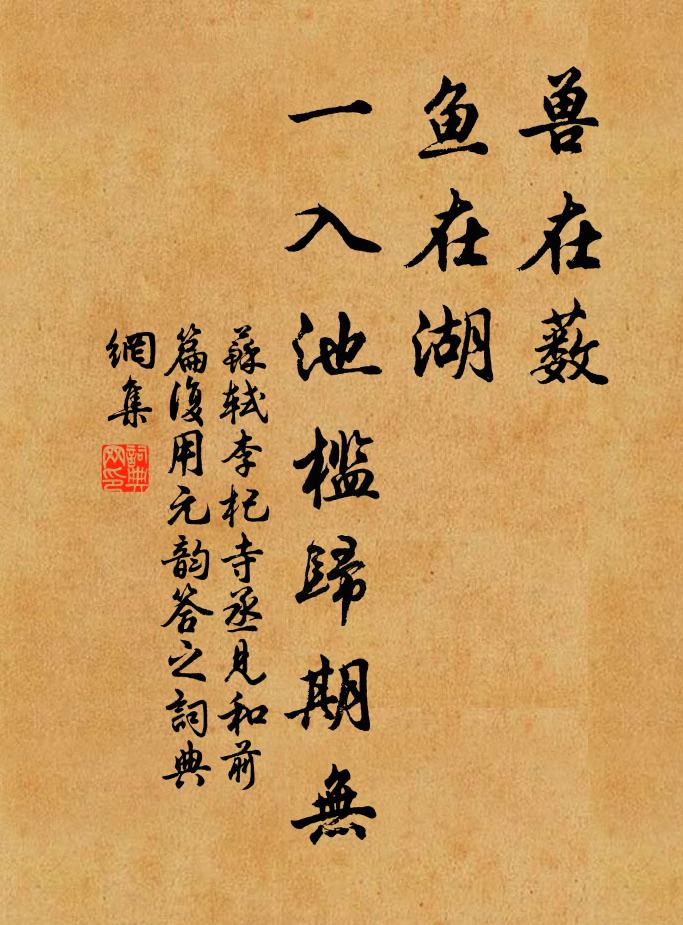 兽在薮
鱼在湖
一入池槛歸期無
蘇轼李杞寺丞见和前
篇復用元韵答之詞典
網集
詞典
网印